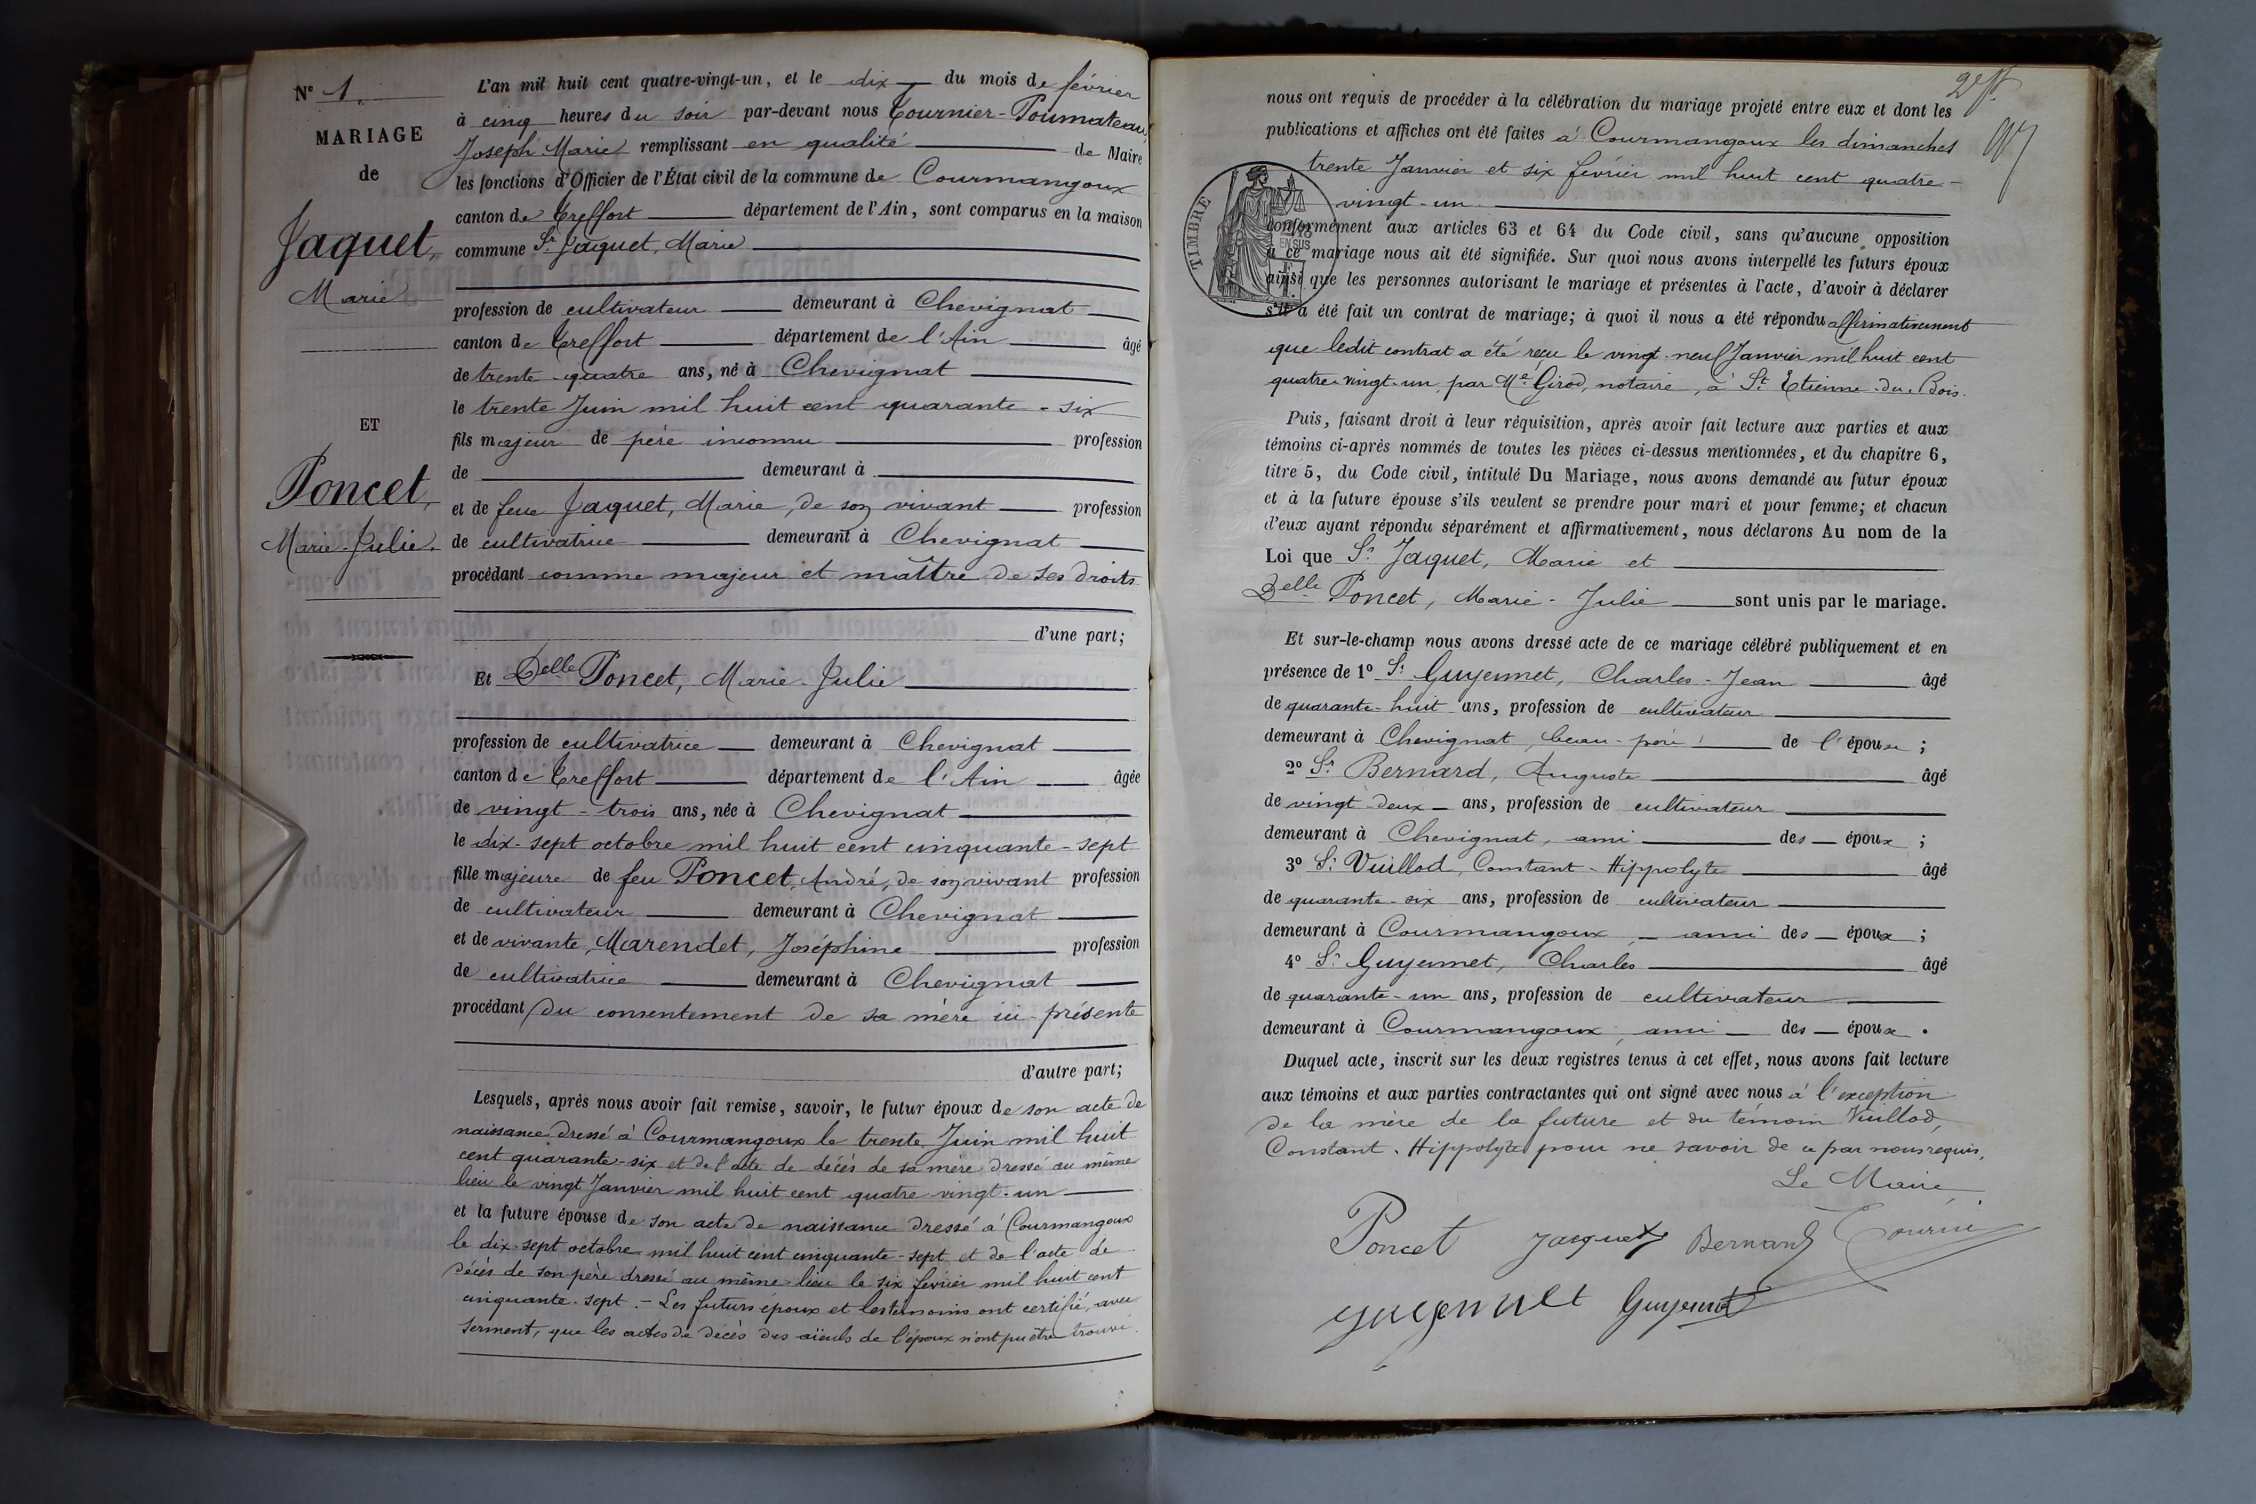 N° 1.
MARIAGE
de
Jaquet,
Marie
ET
Poncet,
Marie-Julie.
L'an mil huit cent quatre-vingt-un, et le dix du mois de février
à cinq heures du soir par-devant nous Tournier-Poumateau,
Joseph Marie remplissant en qualité de Maire
les fonctions d'Officier de l'État civil de la commune de Courmangoux
canton de Treffort département de l'Ain, sont comparus en la maison
commune Sr Jaquet, Marie
profession de cultivateur demeurant à Chevignat
canton de Treffort département de l'Ain âgé
de trente-quatre ans, né à Chevignat
le trente Juin mil huit cent quarante-six
fils majeur de père inconnu profession
de demeurant à
et de feue Jaquet, Marie, de son vivant profession
de cultivatrice demeurant à Chevignat
procédant comme majeur et maître de ses droits
d'une part;
Et Delle Poncet, Marie-Julie
profession de cultivatrice demeurant à Chevignat
canton de Treffort département de l'Ain âgée
de vingt-trois ans, née à Chevignat
le dix-sept octobre mil huit cent cinquante-sept
fille majeure de feu Poncet, André, de son vivant profession
de cultivateur demeurant à Chevignat
et de vivante, Marendet, Joséphine profession
de cultivatrice demeurant à Chevignat
procédant du consentement de sa mère ici-présente
d'autre part;
Lesquels, après nous avoir fait remise, savoir, le futur époux de son acte de
naissance dressé à Courmangoux le trente Juin mil huit
cent quarante-six et de l'acte de décès de sa mère dressé au même
lieu le vingt Janvier mil huit cent quatre vingt-un
et la future épouse de son acte de naissance dressé à Courmangoux
le dix-sept octobre mil huit cent cinquante-sept et de l'acte de
décès de son père dressé au même lieu le six février mil huit cent
cinquante-sept. - Les futurs époux et les témoins ont certifié, avec
serment, que les actes de décès des aïeuls de l'époux n'ont pu être trouvé.
2
nous ont requis de procéder à la célébration du mariage projeté entre eux et dont les
publications et affiches ont été faites à Courmangoux les dimanches
trente Janvier et six février mil huit cent quatre-
vingt-un
TIMBRE
EN SUS
conformément aux articles 63 et 64 du Code civil, sans qu'aucune opposition
à ce mariage nous ait été signifiée. Sur quoi nous avons interpellé les futurs époux
ainsi que les personnes autorisant le mariage et présentes à l'acte, d'avoir à déclarer
s'il a été fait un contrat de mariage; à quoi il nous a été répondu affirmativement
que ledit contrat a été reçu le vingt-neuf Janvier mil huit cent
quatre-vingt-un par Me Girod, notaire, à St Etienne-du-Bois.
Puis, faisant droit à leur réquisition, après avoir fait lecture aux parties et aux
témoins ci-après nommés de toutes les pièces ci-dessus mentionnées, et du chapitre 6,
titre 5, du Code civil, intitulé Du Mariage, nous avons demandé au futur époux
et à la future épouse s'ils veulent se prendre pour mari et pour femme; et chacun
d'eux ayant répondu séparément et affirmativement, nous déclarons Au nom de la
Loi que Sr Jaquet, Marie et
Delle Poncet, Marie-Julie sont unis par le mariage.
Et sur-le-champ nous avons dressé acte de ce mariage célébré publiquement et en
présence de 1° Sr Guyennet, Charles-Jean âgé
de quarante-huit ans, profession de cultivateur
demeurant à Chevignat, beau-père de l'épouse;
2° Sr Bernard, Auguste âgé
de vingt-deux ans, profession de cultivateur
demeurant à Chevignat, ami des époux;
3° Sr Vuillod, Constant-Hippolyte âgé
de quarante-six ans, profession de cultivateur
demeurant à Courmangoux, ami des époux;
4° Sr Guyennet, Charles âgé
de quarante-un ans, profession de cultivateur
demeurant à Courmangoux, ami des époux.
Duquel acte, inscrit sur les deux registres tenus à cet effet, nous avons fait lecture
aux témoins et aux parties contractantes qui ont signé avec nous à l'exception
de la mère de la future et du témoin Vuillod,
Constant-Hippolyte pour ne savoir de ce par nous requis.
Le Maire,
Poncet Jaquet Bernard
Guyennet